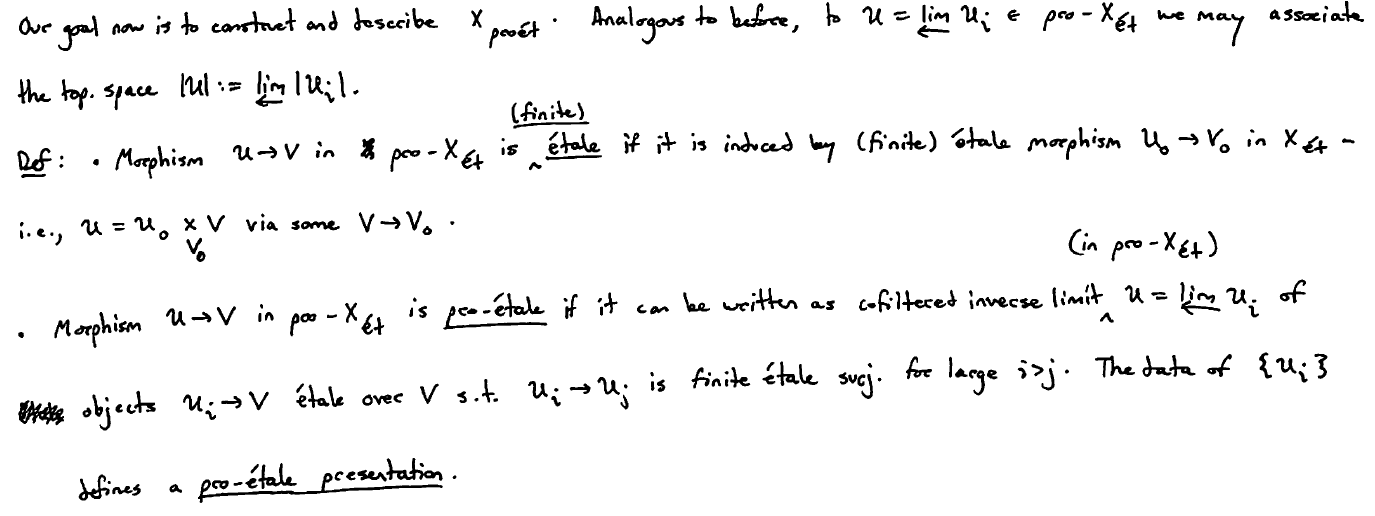 Our goal now is to construct and describe X_proét. Analogous to before, to U = lim← U_i ∈ pro-X_ét we may associate
the top. space |U| := lim← |U_i|.
(finite)
Def: • Morphism U → V in pro-X_ét is ^ étale if it is induced by (finite) étale morphism U_0 → V_0 in X_ét –
i.e., U = U_0 ×_{V_0} V via some V → V_0.
(in pro-X_ét)
• Morphism U → V in pro-X_ét is pro-étale if it can be written as cofiltered inverse limit ^ U = lim← U_i of
objects U_i → V étale over V s.t. U_i → U_j is finite étale surj. for large i>j. The data of {U_i}
defines a pro-étale presentation.